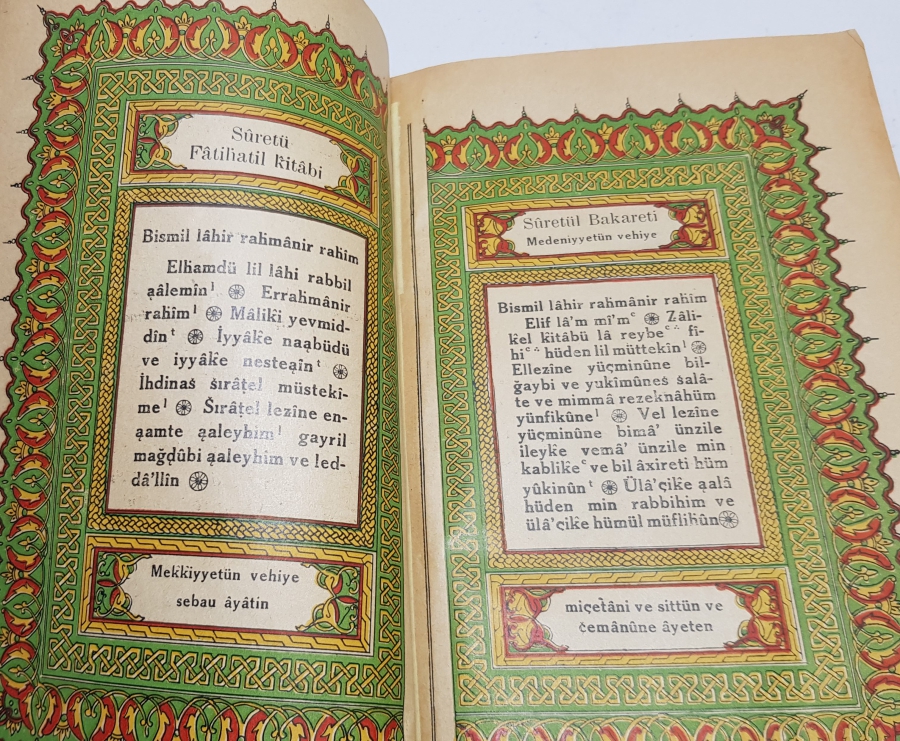 Sûretü
Fâtiħatil k̂itâbi
Bismil lâhir raħmânir raħîm
Elħamdü lil lâhi rabbil
a̧âlemînˡ ֍ Erraħmânir
raħîmˡ ֍ Mâliki yevmid-
dînᵗ ֍ İyyâk̂e naa̧büdü
ve iyyâk̂e nestea̧înᵗ ֍
İhdinaṡ ṡırâţel müstekî-
meˡ ֍ Ṡırâţel lezîne en-
a̧amte a̧aleyhimˡ gayril
mağḑûbi a̧aleyhim ve led-
dâ'llîn ֍
Mekkiyyetün vehiye
sebau âyâtin
Sûretül Bakareti
Medeniyyetün vehiye
Bismil lâhir raħmânir raħîm
Elif lâ'm mî'mᶜ ֍ Zâli-
kel kitâbü lâ reybeᶜ∴ fî-
hiᶜ∴ hüden lil müttekînˡ ֍
Ellezîne yüçminûne bil-
ğaybi ve yukîmûneṡ ṡalâ-
te ve mimmâ rezeknâhüm
yünfikûneˡ ֍ Vel lezîne
yüçminûne bimâ' ünzile
ileyke vemâ' ünzile min
kablik̂eᶜ ve bil âxireti hüm
yûkinûnᵗ ֍ Ülâ'çik̂e a̧alâ
hüden min rabbihim ve
ülâ'çik̂e hümül müfliħûn ֍
miçet̂âni ve sittün ve
ŝemânûne âyeten